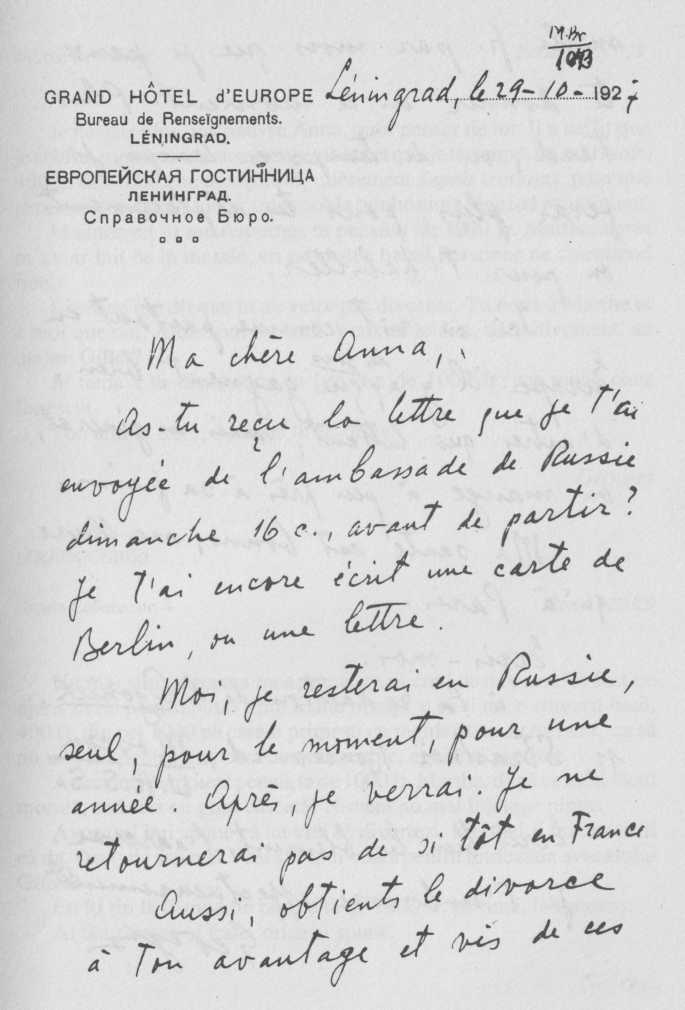 M.Br
1043
GRAND HÔTEL d'EUROPE Léningrad, le 29-10-1927
Bureau de Renseïgnements.
LÉNINGRAD.
ЕВРОПЕЙСКАЯ ГОСТИННИЦА
ЛЕНИНГРАД.
Справочное Бюро.
Ma chère Anna,
As-tu reçu la lettre que je t'ai
envoyée de l'ambassade de Russie
dimanche 16 c., avant de partir?
Je t'ai encore écrit une carte de
Berlin, ou une lettre.
Moi, je resterai en Russie,
seul, pour le moment, pour une
année. Après, je verrai. Je ne
retournerai pas de si tôt en France
Aussi, obtients le divorce
à ton avantage et vis de ces